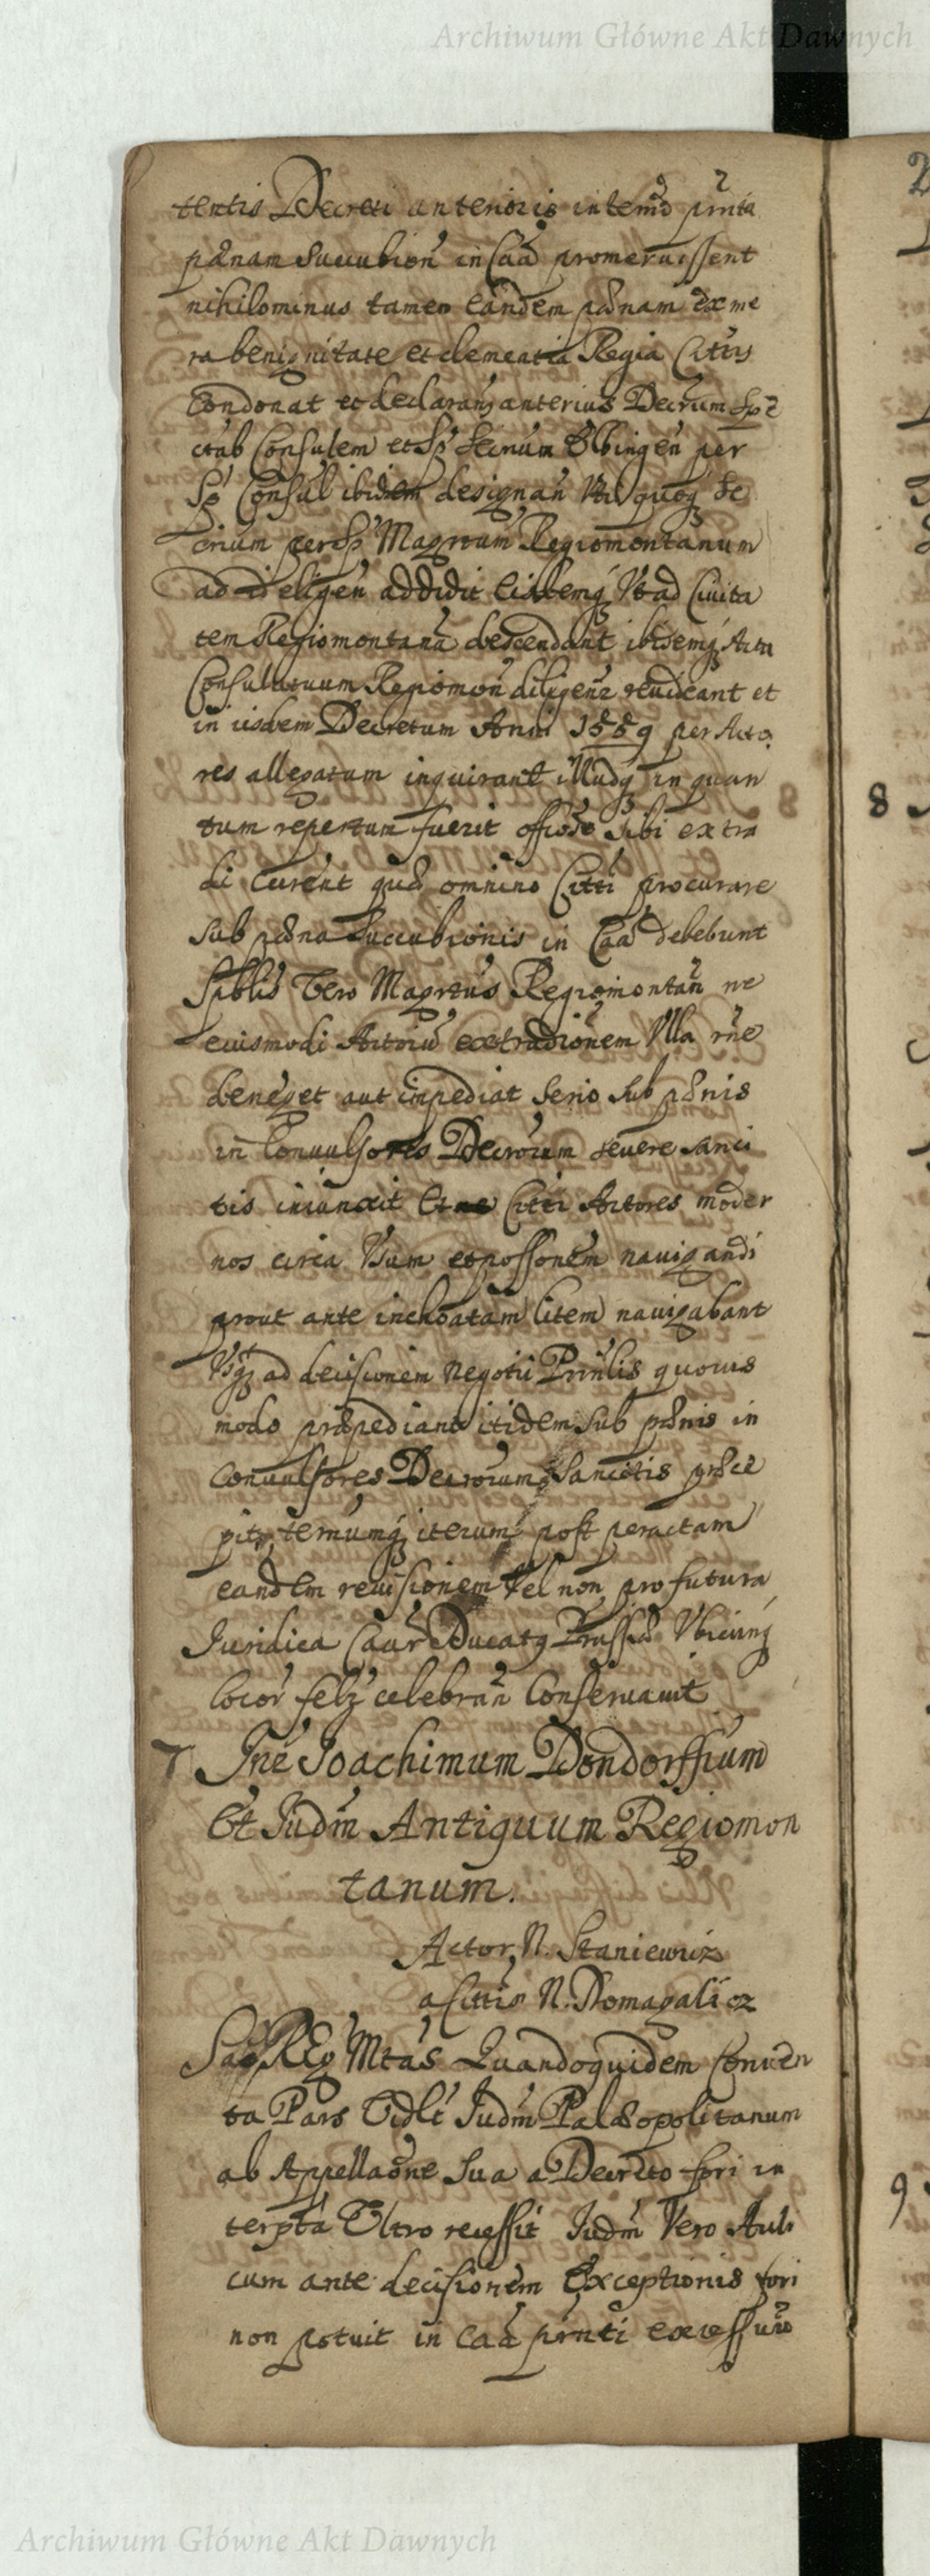 Archiwum Główne Akt Dawnych
tentis Decreti anterioris interīo prnta
pænam succubion in Caa promeruissent
nihilominus tamen eandem pænam ex me
ra benignitate et clementia Regia Cittis
Condonat et declaran anterius Decrum Sp
ctab Consulem et Sp Secrium Elbingen per
Sp Consul ibidem designan Nil quoq Se
crium per Sp Magrtum Regiomontanum
ad id eligen addidit Eisdemq Vt ad Civita
tem Regiomontana descendant ibidemq Acta
Consulatuum Regiomon diligenr revideant et
in iisdem Decretum Anni 1589 per Acto
res allegatum inquirant illudq in quan
tum repertum fuerit offiose sibi extra
di curent quod omnino Citti procurare
sub pæna succubionis in Caa debebunt
Spblis Vero Magrtus Regiomontan ne
euismodi Actoru extradionem Vlla rne
deneget aut impediat serio sub pænis
in Convulsores Decrorum severe sanci
tis iniunxit Citti Actores moder
nos circa Vsum et possonem navigandi
prout ante inchoatam litem navigabant
Vsq ad decisionem Negotii Prinlis quovis
modo præpediant itidem sub pænis in
convulsores Decrorum Sancitis præci
pit, ternumq iterum post peractam
eandem revisionem Vel non pro futura
Juridica Caur Ducatq Prussiæ Vbicunq
locor felr celebran Conservavit
7 Jne Joachimum Dondorffium
Et Judm Antiquum Regiomon
tanum.
Actor, N. Staniewicz
a Cittis N. Domagalicz
Sac REg Mtas Quandoquidem Conven
ta Pars Vidlt Judm Palæopolitanum
ab Appellaone sua a Decreto fori in
terpta Vltro recessit Judm Vero Auli
cum ante decisionem Exceptionis fori
non potuit in caa prnti
8
9
Archiwum Główne Akt Dawnych